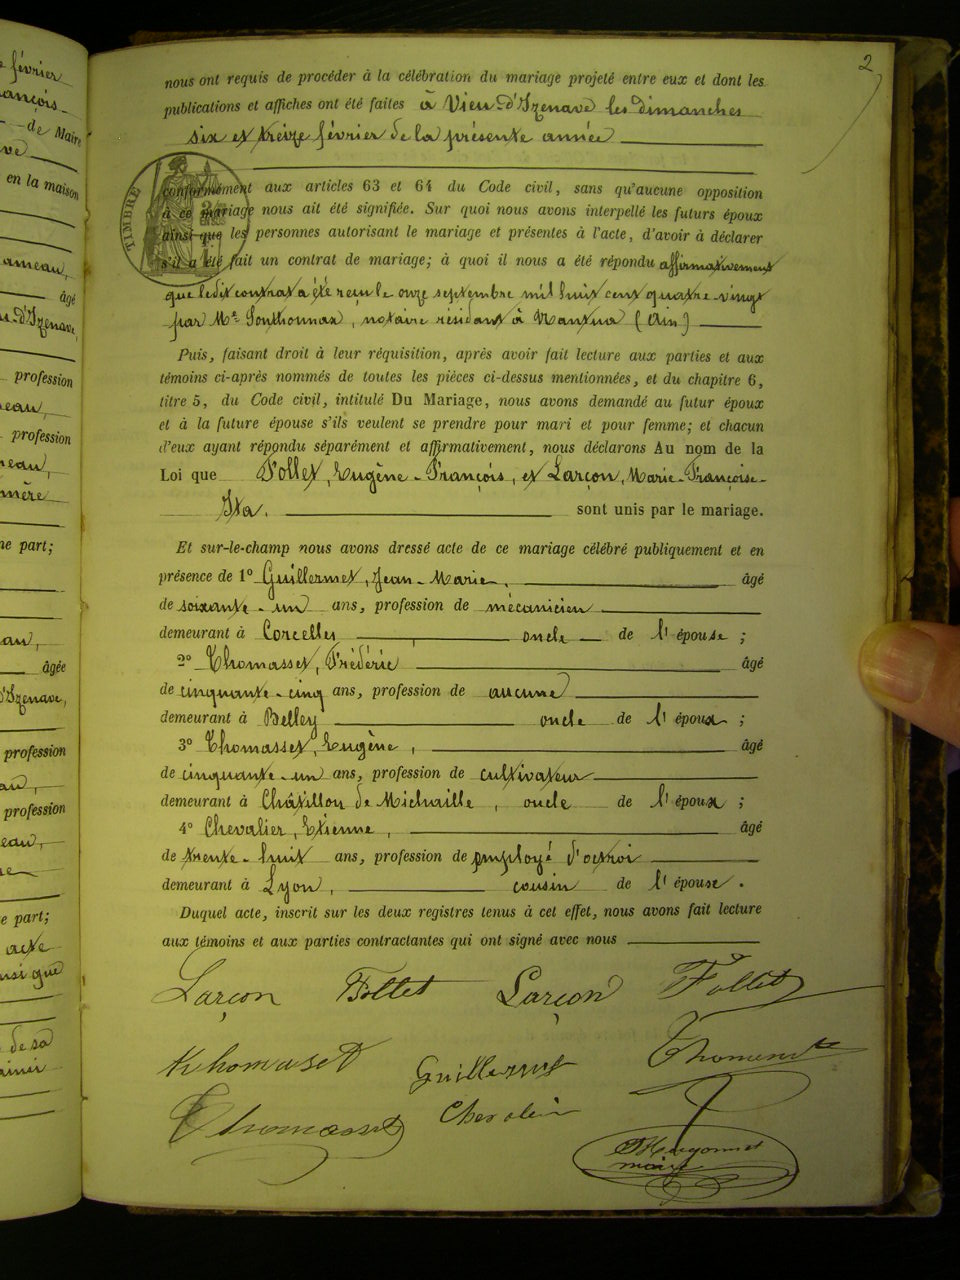 2
nous ont requis de procéder à la célébration du mariage projeté entre eux et dont les
publications et affiches ont été faites à Vieu-d'Izenave les dimanches
six et treize février de la présente année
TIMBRE
conformément aux articles 63 et 64 du Code civil, sans qu'aucune opposition
à ce mariage nous ait été signifiée. Sur quoi nous avons interpellé les futurs époux
ainsi que les personnes autorisant le mariage et présentes à l'acte, d'avoir à déclarer
s'il a été fait un contrat de mariage; à quoi il nous a été répondu affirmativement
que ledit contrat a été reçu le onze septembre mil huit cent quatre-vingt
par Me Gonthonnax, notaire résidant à Nantua (Ain)
Puis, faisant droit à leur réquisition, après avoir fait lecture aux parties et aux
témoins ci-après nommés de toutes les pièces ci-dessus mentionnées, et du chapitre 6,
titre 5, du Code civil, intitulé Du Mariage, nous avons demandé au futur époux
et à la future épouse s'ils veulent se prendre pour mari et pour femme; et chacun
d'eux ayant répondu séparément et affirmativement, nous déclarons Au nom de la
Loi que Follet, Eugène-François, et Larçon, Marie-Françoise-
Ita. sont unis par le mariage.
Et sur-le-champ nous avons dressé acte de ce mariage célébré publiquement et en
présence de 1° Guillermet, Jean-Marie, âgé
de soixante-un ans, profession de mécanicien
demeurant à Corcelles, oncle de l'épouse;
2° Thomasset, Frédéric âgé
de cinquante-cinq ans, profession de aucune
demeurant à Belley oncle de l'époux;
3° Thomasset, Eugène, âgé
de cinquante-un ans, profession de cultivateur
demeurant à Châtillon de Michaille, oncle de l'époux;
4° Chevalier, Etienne, âgé
de trente-huit ans, profession de employé d'octroi
demeurant à Lyon, cousin de l'épouse.
Duquel acte, inscrit sur les deux registres tenus à cet effet, nous avons fait lecture
aux témoins et aux parties contractantes qui ont signé avec nous
Larçon Follet Larçon Follet
Thomasset Guillermet
Thomasset Chevalier
Hugonnet
maire
février
de Maire
en la maison
âgé
profession
profession
part;
âgée
profession
profession
part;
acte
de sa